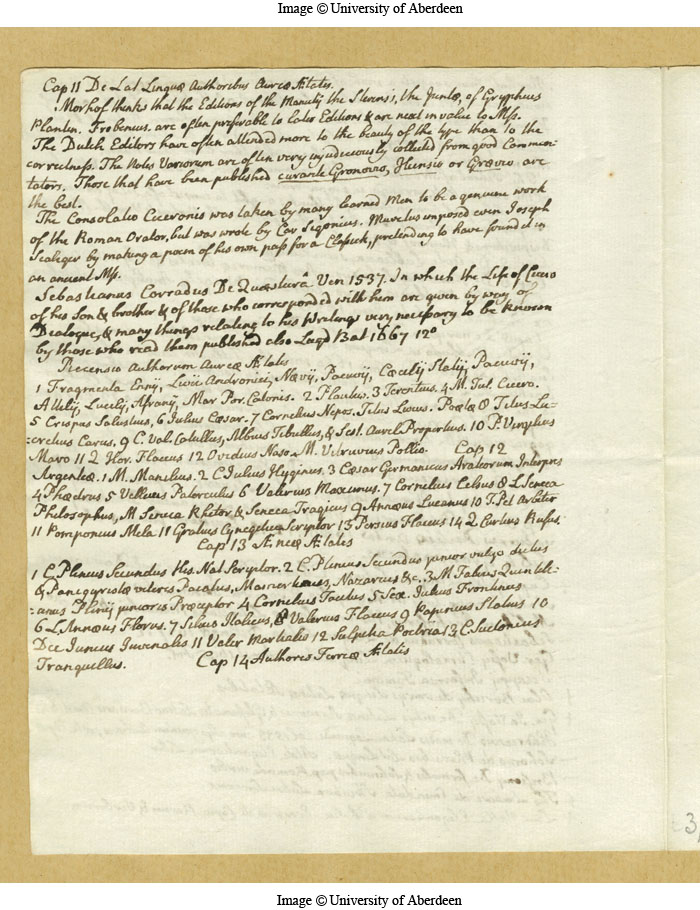 Image © University of Aberdeen
Cap 11 De Lat Linguæ Authoribus Aureæ Ætatis.
Morhof thinks that the Editions of the Manutij the Stevens's, the Juntæ, of Gryphius
Plantin. Frobenius. are often preferable to later Editions & are next in value to Mss.
The Dutch Editors have often attended more to the beauty of the type than to the
correctness. The Notes Variorum are often very injudiciously collected from good Commen-
tators. Those that have been published curante Gronovio, Heinsio or Grævio are
the best.
The Consolatio Ciceronis was taken by many learned Men to be a genuine work
of the Roman Orator, but was wrote by Car Sigonius. Muretus imposed even Joseph
Scaliger by making a poem of his own pass for a Classick, pretending to have found it in
an ancient Mss.
Sebastianus Corradus De Quæsturâ Ven 1537. In which the Life of Cicero
of his Son & brother & of those who corresponded with him are given by way of
Dialogue, & many things relating to his Writings very necessary to be known
by those who read them published also Lugd Bat 1667 12º
Recensio Authorum Aureæ Ætatis
1 Fragmenta Ennij, Livii Andronici, Nævij, Pacuvij, Cæcilij Statij, Pacuvij,
Attilij, Lucilij, Afranij, Mar Por. Catonis. 2 Plautus. 3 Terentius. 4 M. Tul. Cicero.
5 Crispus Salustius, 6 Julius Cæsar. 7 Cornelius Nepos, Titus Livius. Poetæ 8 Titus Lu-
-cretius Carus, 9 C. Val. Catullus, Albius Tibullus, & Sext. Aurel Propertius. 10 P. Virgilius
Maro 11 Q Hor. Flaccus 12 Ovidius Naso. M. Vitruvius Pollio. Cap 12
Argenteæ. 1 M. Manilius. 2 C Julius Hyginus. 3 Cæsar Germanicus Arateorum Interpres
4 Phædrus 5 Velleius Paterculus 6 Valerius Maximus. 7 Cornelius Celsus 8 L Seneca
Philosophus, M Seneca Rhetor & Seneca Tragicus 9 Annæus Lucanus 10 T. Pet Arbiter
11 Pomponius Mela 11 Gratius Cynegeticon Scriptor 13 Persius Flaccus 14 Q Curtius Rufus.
Cap 13 Æneæ Ætatis
1 C Plinius Secundus His. Nat Scriptor. 2 C. Plinius Secundus junior vulgo dictus
& Panegyristæ veteres Pacatus, Mamertinus, Nazarius &c. 3 M Fabius Quintili-
-anus Plinij junioris Præceptor 4 Cornelius Tacitus 5 Sex. Julius Frontinus
6 L Annæus Florus. 7 Silius Italicus, 8 Valerius Flaccus 9 Papinius Statius 10
Dec Junius Juvenalis 11 Valer Martialis 12 Sulpitia Poetria 13 C. Suetonius
Tranquillus. Cap 14 Authores Ferreæ Ætatis
3,
Image © University of Aberdeen